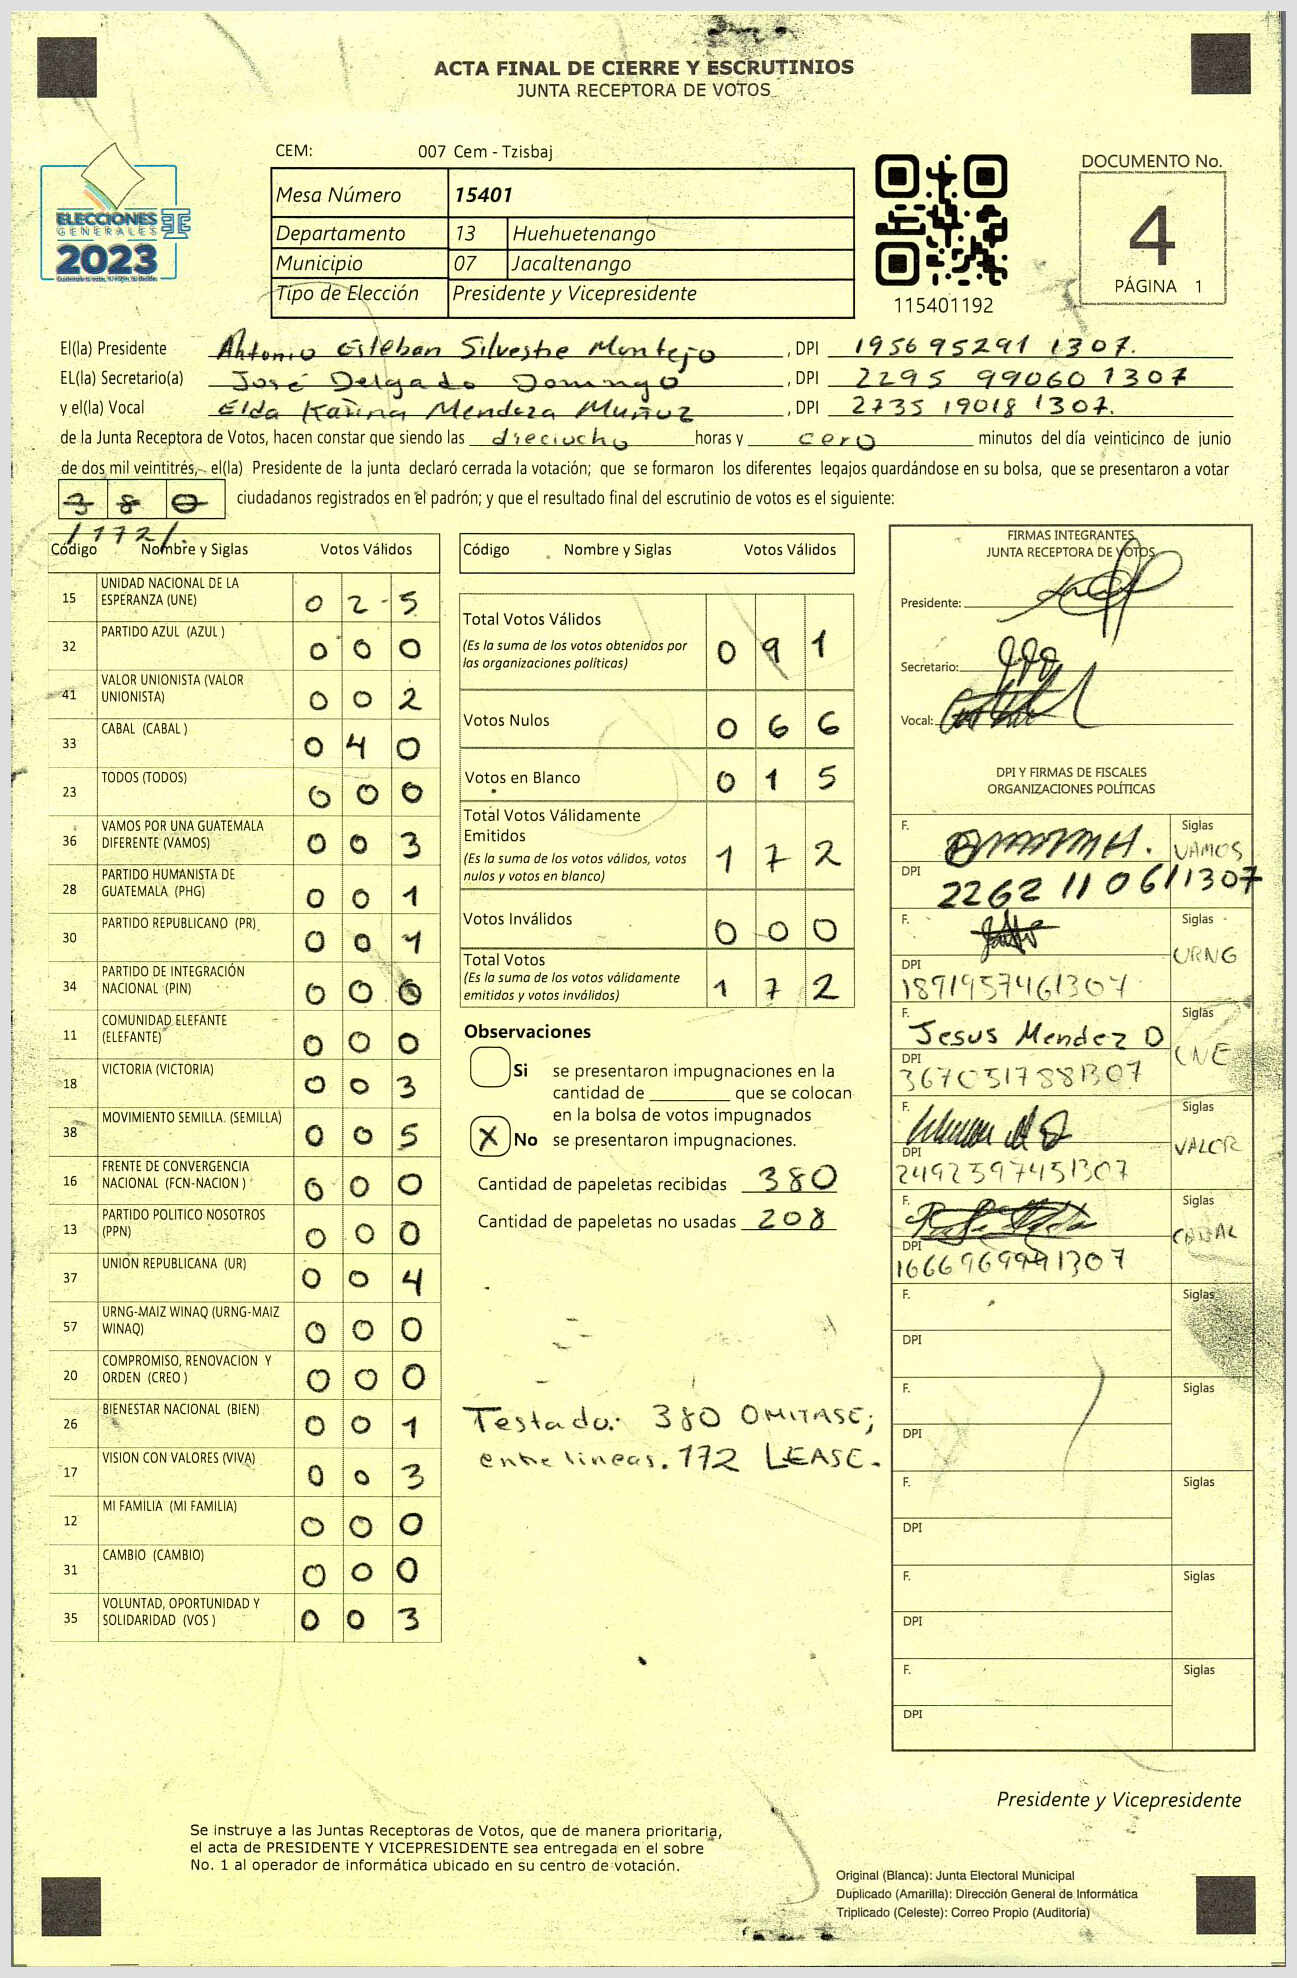 ACTA FINAL DE CIERRE Y ESCRUTINIOS
JUNTA RECEPTORA DE VOTOS
CEM: 007 Cem - Tzisbaj
Mesa Número 15401
Departamento 13 Huehuetenango
Municipio 07 Jacaltenango
Tipo de Elección Presidente y Vicepresidente
ELECCIONES
GENERALES
2023
115401192
DOCUMENTO No.
4
PÁGINA 1
El(la) Presidente Antonio Esteban Silvestre Montejo, DPI 195695291 1307.
EL(la) Secretario(a) José Delgado Domingo, DPI 2295 99060 1307
y el(la) Vocal Elda Karina Mendoza Muñoz, DPI 2735 19018 1307.
de la Junta Receptora de Votos, hacen constar que siendo las dieciocho horas y cero minutos del día veinticinco de junio
de dos mil veintitrés, el(la) Presidente de la junta declaró cerrada la votación; que se formaron los diferentes legajos guardándose en su bolsa, que se presentaron a votar
3 8 0 ciudadanos registrados en el padrón; y que el resultado final del escrutinio de votos es el siguiente:
/172/.
Código Nombre y Siglas Votos Válidos
15 UNIDAD NACIONAL DE LA ESPERANZA (UNE) 0 2 5
32 PARTIDO AZUL (AZUL ) 0 0 0
41 VALOR UNIONISTA (VALOR UNIONISTA) 0 0 2
33 CABAL (CABAL ) 0 4 0
23 TODOS (TODOS) 0 0 0
36 VAMOS POR UNA GUATEMALA DIFERENTE (VAMOS) 0 0 3
28 PARTIDO HUMANISTA DE GUATEMALA (PHG) 0 0 1
30 PARTIDO REPUBLICANO (PR) 0 0 1
34 PARTIDO DE INTEGRACIÓN NACIONAL (PIN) 0 0 0
11 COMUNIDAD ELEFANTE (ELEFANTE) 0 0 0
18 VICTORIA (VICTORIA) 0 0 3
38 MOVIMIENTO SEMILLA (SEMILLA) 0 0 5
16 FRENTE DE CONVERGENCIA NACIONAL (FCN-NACION ) 0 0 0
13 PARTIDO POLITICO NOSOTROS (PPN) 0 0 0
37 UNION REPUBLICANA (UR) 0 0 4
57 URNG-MAIZ WINAQ (URNG-MAIZ WINAQ) 0 0 0
20 COMPROMISO, RENOVACION Y ORDEN (CREO ) 0 0 0
26 BIENESTAR NACIONAL (BIEN) 0 0 1
17 VISION CON VALORES (VIVA) 0 0 3
12 MI FAMILIA (MI FAMILIA) 0 0 0
31 CAMBIO (CAMBIO) 0 0 0
35 VOLUNTAD, OPORTUNIDAD Y SOLIDARIDAD (VOS ) 0 0 3
Código Nombre y Siglas Votos Válidos
Total Votos Válidos 0 9 1
(Es la suma de los votos obtenidos por
las organizaciones políticas)
Votos Nulos 0 6 6
Votos en Blanco 0 1 5
Total Votos Válidamente
Emitidos 1 7 2
(Es la suma de los votos válidos, votos
nulos y votos en blanco)
Votos Inválidos 0 0 0
Total Votos 1 7 2
(Es la suma de los votos válidamente
emitidos y votos inválidos)
Observaciones
Si se presentaron impugnaciones en la
cantidad de ________ que se colocan
en la bolsa de votos impugnados
X No se presentaron impugnaciones.
Cantidad de papeletas recibidas 380
Cantidad de papeletas no usadas 208
Testado: 380 OMITASE;
entre lineas. 172 LEASE.
FIRMAS INTEGRANTES
JUNTA RECEPTORA DE VOTOS
Presidente:
Secretario:
Vocal:
DPI Y FIRMAS DE FISCALES
ORGANIZACIONES POLÍTICAS
F. Siglas VAMOS
DPI 2262 11 061 1307
F. Siglas URNG
DPI 1891957461307
F. Jesus Mendez D Siglas UNE
DPI 3670517881307
F. Siglas VALOR
DPI 2492597451307
F. Siglas CABAL
DPI
F. Siglas
DPI
F. Siglas
DPI
F. Siglas
DPI
F. Siglas
DPI
F. Siglas
DPI
Presidente y Vicepresidente
Se instruye a las Juntas Receptoras de Votos, que de manera prioritaria,
el acta de PRESIDENTE Y VICEPRESIDENTE sea entregada en el sobre
No. 1 al operador de informática ubicado en su centro de votación.
Original (Blanca): Junta Electoral Municipal
Duplicado (Amarilla): Dirección General de Informática
Triplicado (Celeste): Correo Propio (Auditoría)